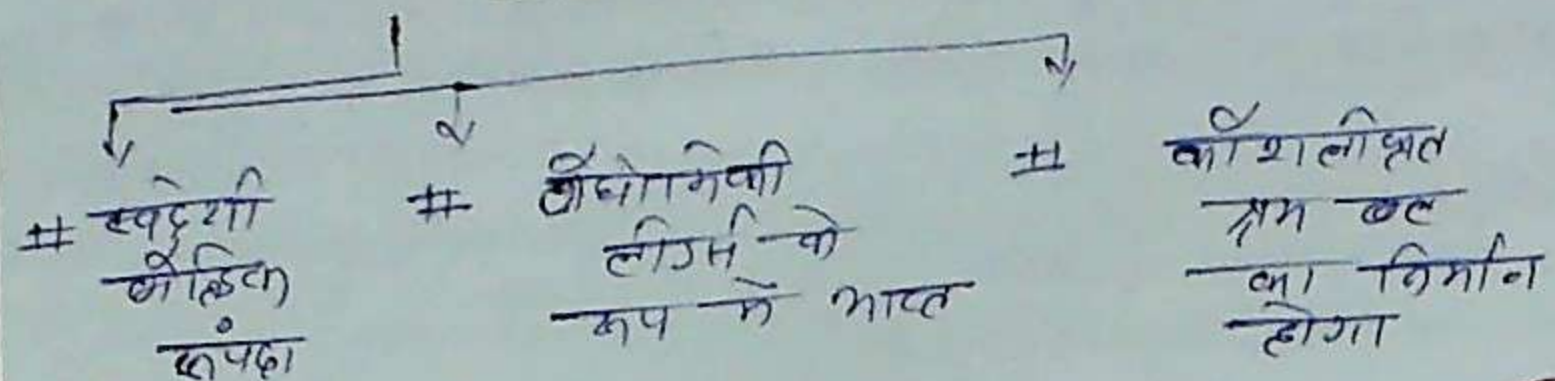 # स्वदेशी
बौद्धिक
संपदा
# प्रौद्योगिकी
लीडर्स के
रूप में भारत
# कौशलीकृत
श्रम बल
का निर्माण
होगा